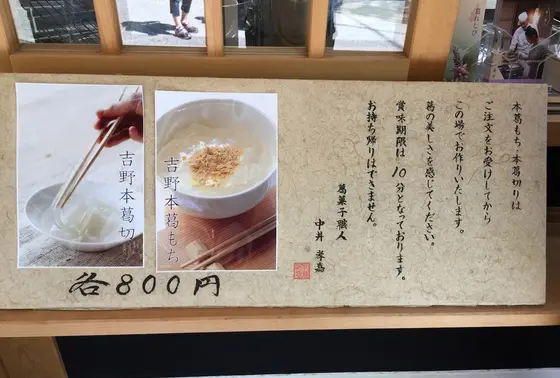 本葛もち・本葛切りは
ご注文をお受けしてから
この場でお作りいたします。
葛の美しさを感じてください。
賞味期限は10分となっております。
お持ち帰りはできません。
葛菓子職人
中井孝嘉
吉野本葛もち
吉野本葛切
各800円